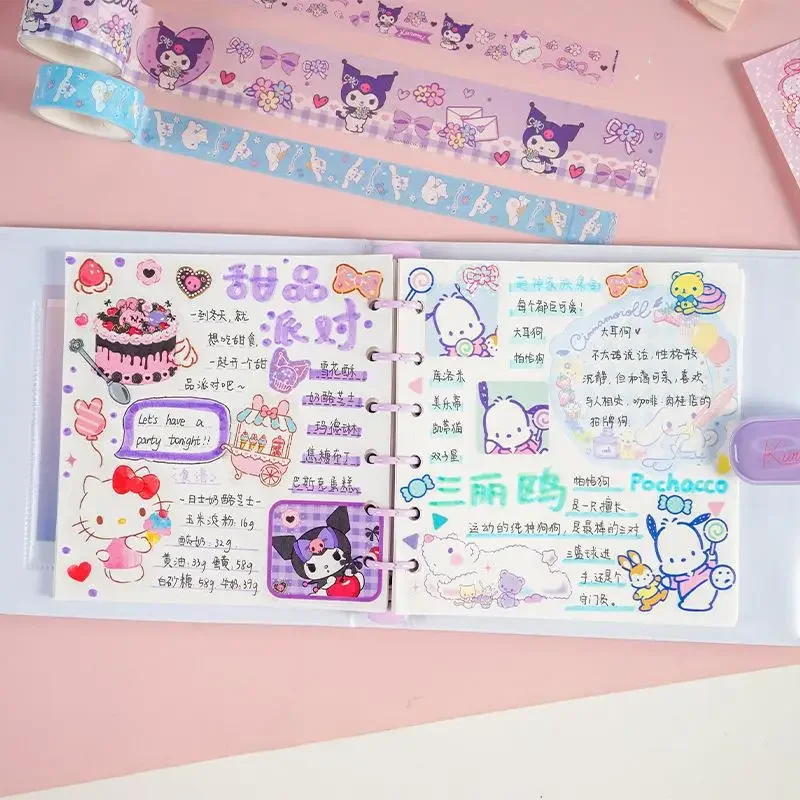 甜品
派对
一到冬天，就
想吃甜食
一起开一个甜
品派对吧~
雪花酥
奶酪芝士
玛德琳
焦糖布丁
巴斯克蛋糕
Let's have a
party tonight!!
食谱
-日式奶酪芝士-
玉米淀粉：16g
酸奶：32g
黄油：33g 蛋黄：58g
白砂糖：58g 牛奶：39g
每个都巨可爱！
大耳狗
帕恰狗
库洛米
美乐蒂
双子星
Cinnamoroll
大耳狗
不太爱说话，性格较
沉静，但和蔼可亲，喜欢
与人相处，咖啡·肉桂店的
招牌狗
三丽鸥
帕恰狗 Pochacco
是一只擅长
运动的纯种狗狗，是最棒的三对
三篮球选
手，还是个
守门员。
Kuro